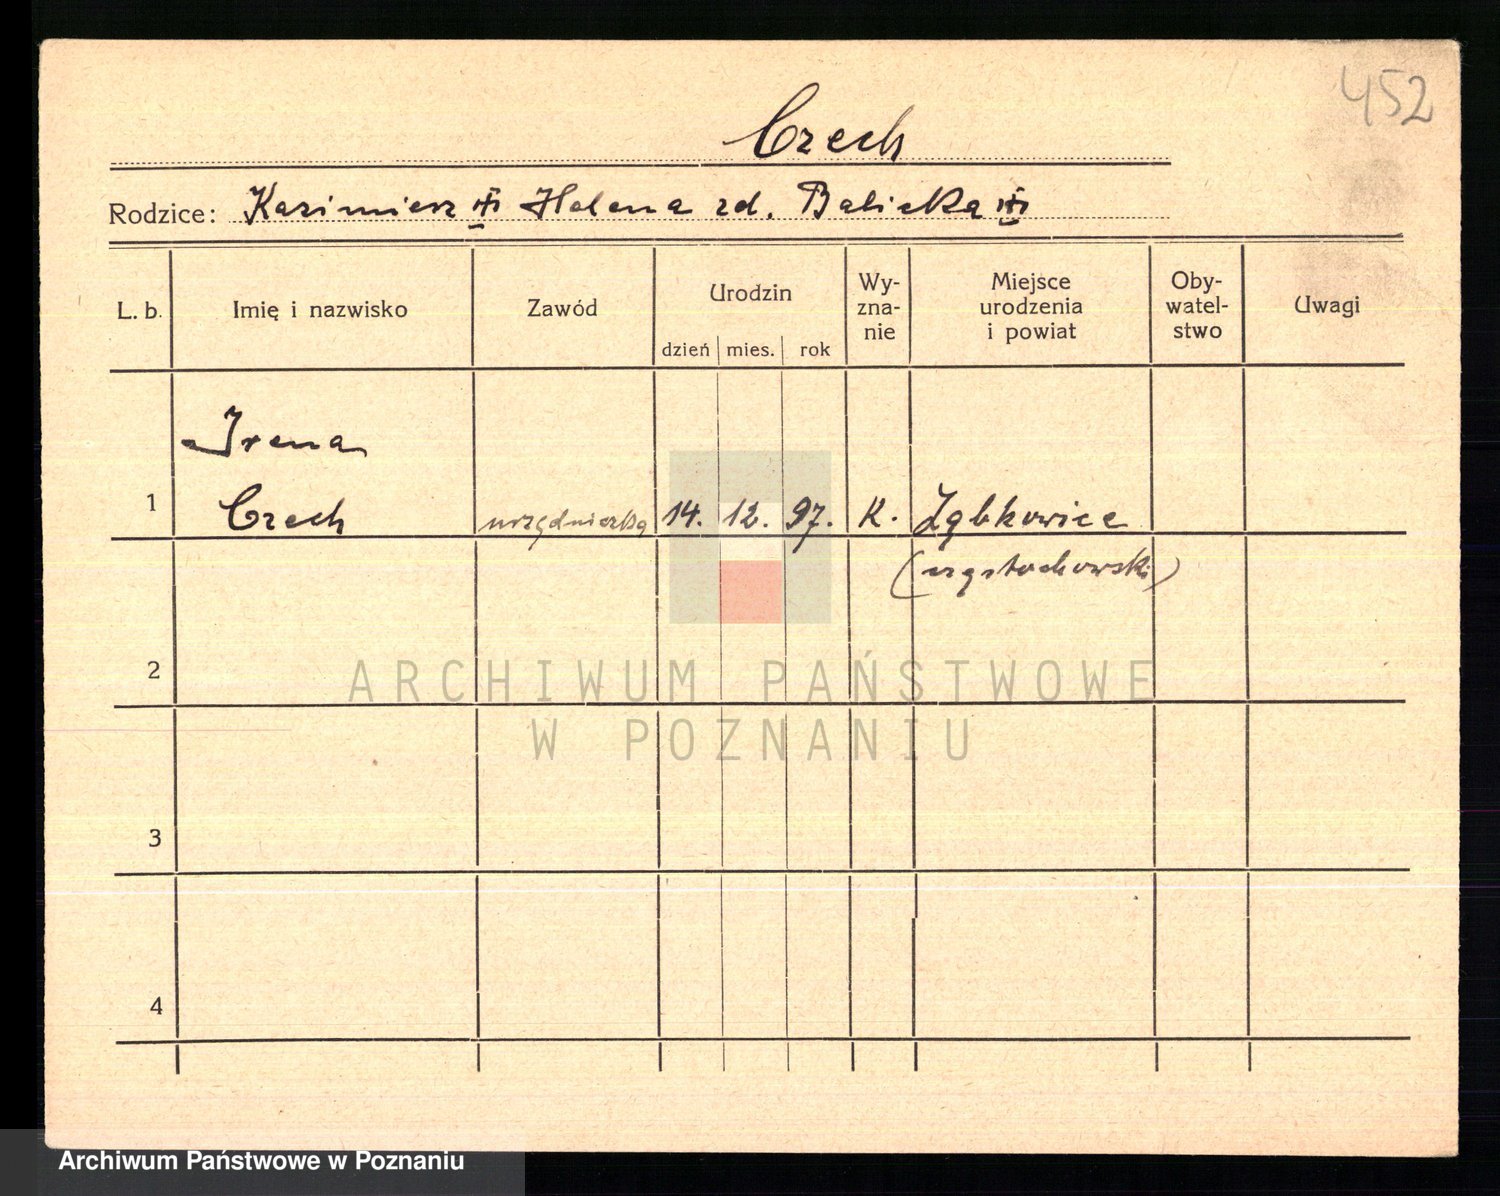 452
Czech
Rodzice: Kazimierz Helena zd. Balicka
L. b. Imię i nazwisko Zawód Urodzin dzień mies. rok Wy-zna-nie Miejsce urodzenia i powiat Oby-watel-stwo Uwagi
Irena
1 Czech urzędniczka 14. 12. 97. K. Ząbkowice
(częstochowski)
2
3
4
ARCHIWUM PAŃSTWOWE
W POZNANIU
Archiwum Państwowe w Poznaniu